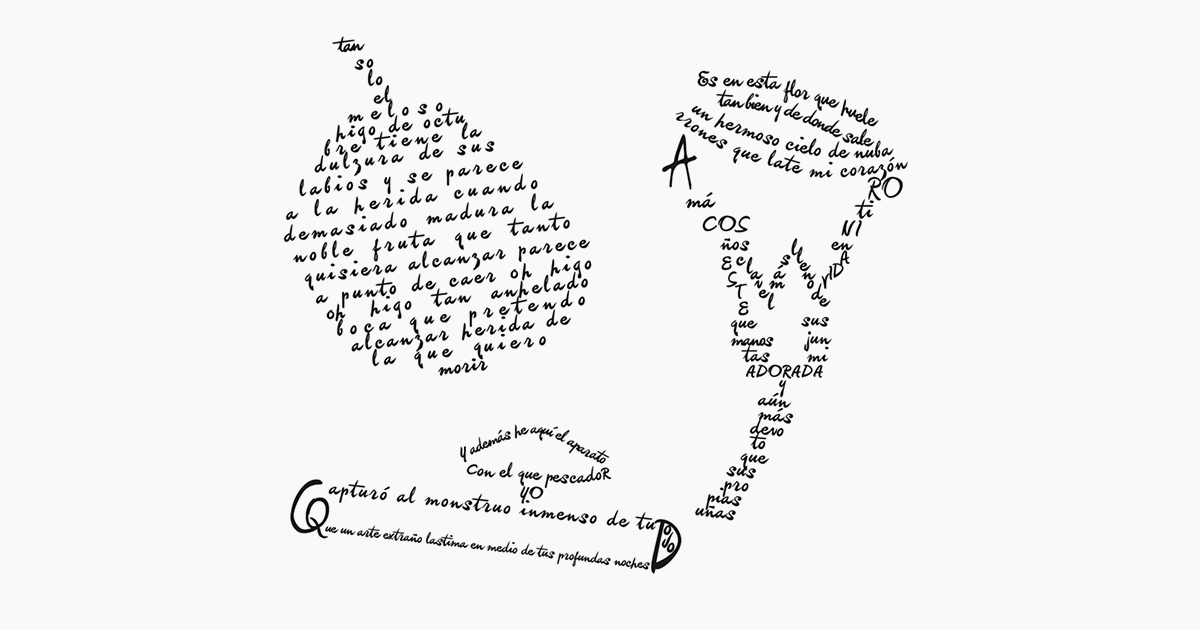 tan
so
lo
el
meloso
higo de octu
bre tiene la
dulzura de sus
labios y se parece
a la herida cuando
demasiado madura la
noble fruta que tanto
quisiera alcanzar parece
a punto de caer oh higo
oh higo tan anhelado
boca que pretendo
alcanzar herida de
la que quiero
morir
Es en esta flor que huele
tan bien y de donde sale
un hermoso cielo de nuba
rrones que late mi corazón
A RO
má ti
COS NI
ños en
ESTE
clavel
más
lleno
de
VIDA
que sus
manos jun
tas mi
ADORADA
y
aún
más
devo
to
que
sus
pro
pias
uñas
Y además he aquí el aparato
Con el que pescadoR
YO
Capturó al monstruo inmenso de tu OJO
Que un arte extraño lastima en medio de tus profundas noches